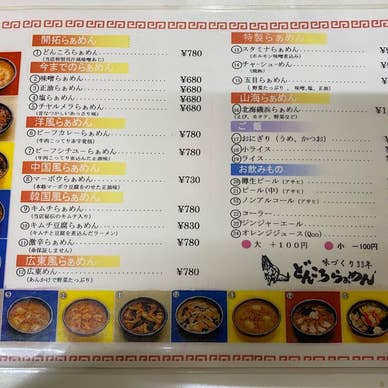 開拓らぁめん
①どんころらぁめん ¥780
(当店特製四川風味噌あじ)
今までのらぁめん
②味噌らぁめん ¥680
③正油らぁめん ¥680
④塩らぁめん ¥680
⑤チャルメララぁめん ¥680
洋風らぁめん
⑥ビーフカレーらぁめん ¥780
(牛肉こってり赤字覚悟)
⑦ビーフシチューらぁめん ¥780
(牛肉こってり憲に合った正油味)
中国風らぁめん
⑧マーボウらぁめん ¥780
(本格マーボウ豆腐をのせた正油味)
韓国風らぁめん
⑨キムチらぁめん ¥780
(当店秘伝のキムチ入り)
⑩キムチ豆腐らぁめん ¥830
(キムチと豆腐を煮込んだラーメン)
⑪激辛らぁめん ¥780
(命保証しません)
広東風らぁめん
⑫広東めん ¥780
(あんかけで野菜たっぷり)
特製らぁめん
⑬スタミナらぁめん
(ホルモン味噌煮込み)
⑭チャーシューめん
(焼豚)
⑮五目らぁめん
(野菜たっぷり、味噌、塩、正油)
山海らぁめん
⑯北海磯浜らぁめん
(えび、ホタテ、野菜など)
ご飯
⑰おにぎり(うめ、かつお)
⑱小ライス
⑲ライス
お飲みもの
⑳樽生ビール(アサヒ)
㉑ビール(中)(アサヒ)
ノンアルコール(アサヒ)
コーラー
ジンジャーエール
オレンジジュース(Qoo)
大 +100円 小 -100円
味づくり33年
どんころらぁめん